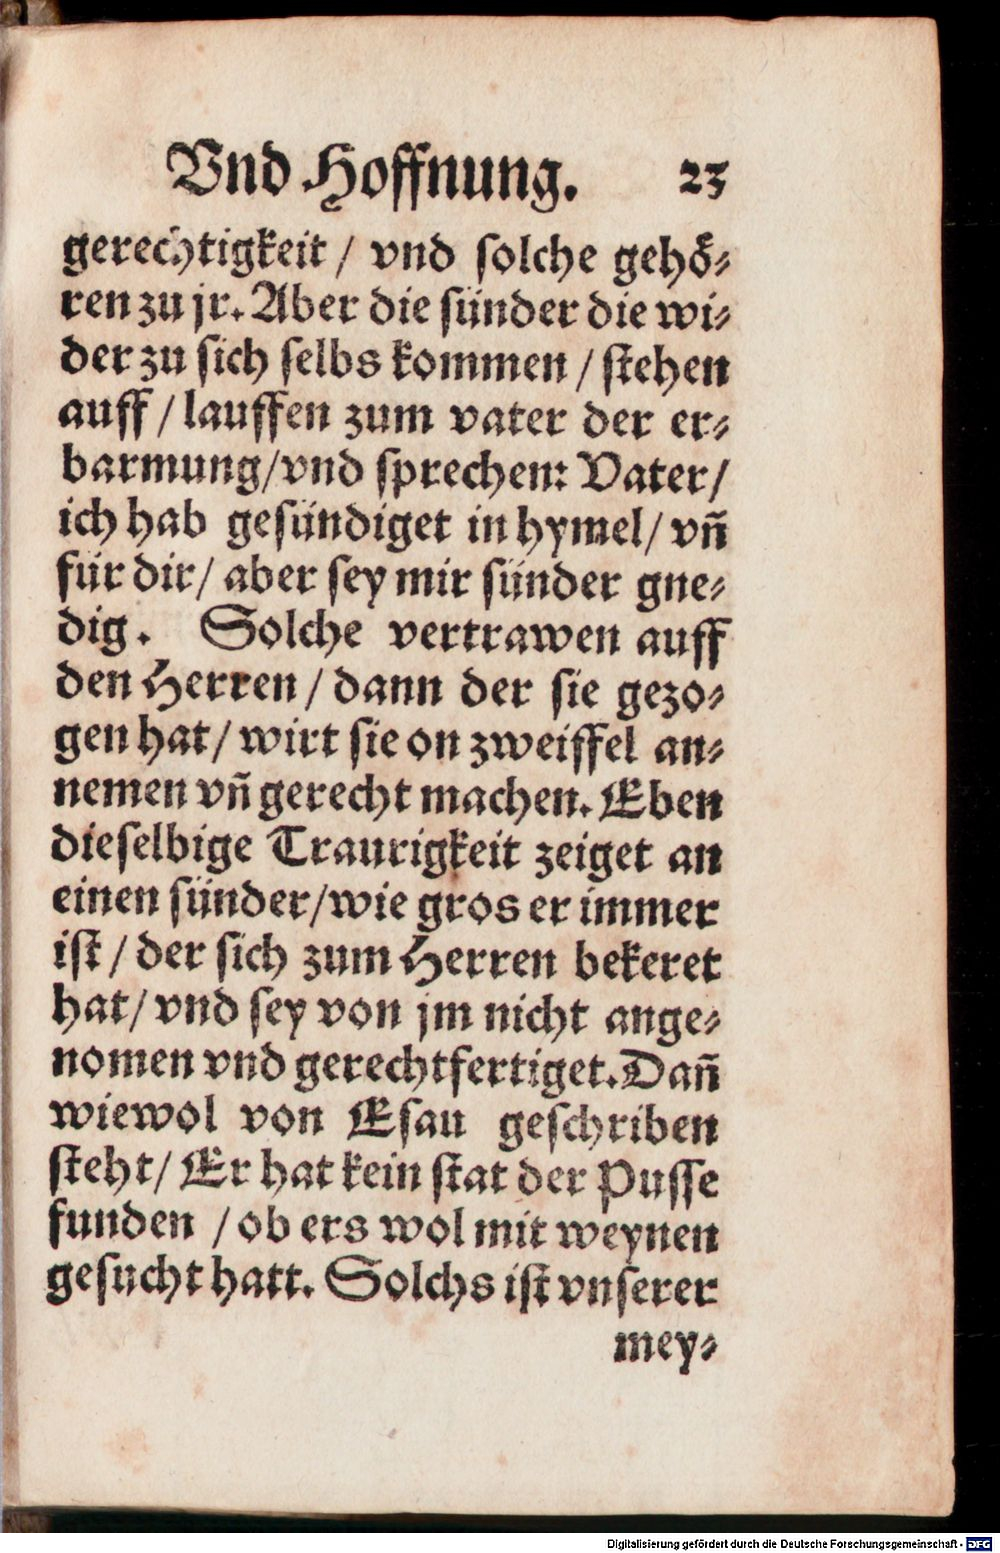 Vnd Hoffnung. 23
gerechtigkeit / vnd solche gehö⸗
ren zu jr. Aber die sünder die wi⸗
der zu sich selbs kommen / stehen
auff / lauffen zum vater der er⸗
barmung / vnd sprechen: Vater /
ich hab gesündiget in hymel / vñ
für dir / aber sey mir sünder gne⸗
dig. Solche vertrawen auff
den Herren / dann der sie gezo⸗
gen hat / wirt sie on zweiffel an⸗
nemen vñ gerecht machen. Eben
dieselbige Traurigkeit zeiget an
einen sünder / wie gros er immer
ist / der sich zum Herren bekeret
hat / vnd sey von jm nicht ange⸗
nomen vnd gerechtfertiget. Dañ
wiewol von Esau geschriben
steht / Er hat kein stat der Pusse
funden / ob ers wol mit weynen
gesucht hatt. Solchs ist vnserer
mey⸗
Digitalisierung gefördert durch die Deutsche Forschungsgemeinschaft - DFG